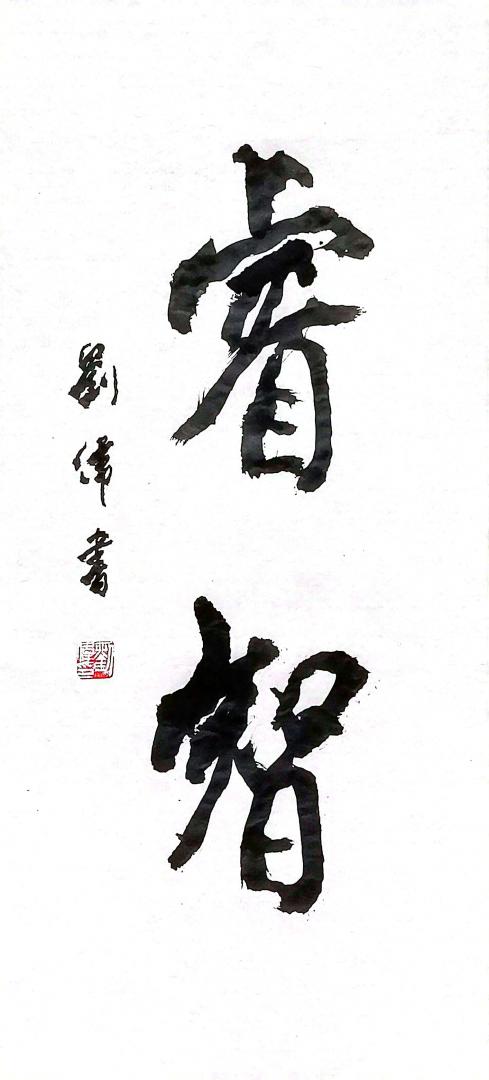 睿智
劉偉書